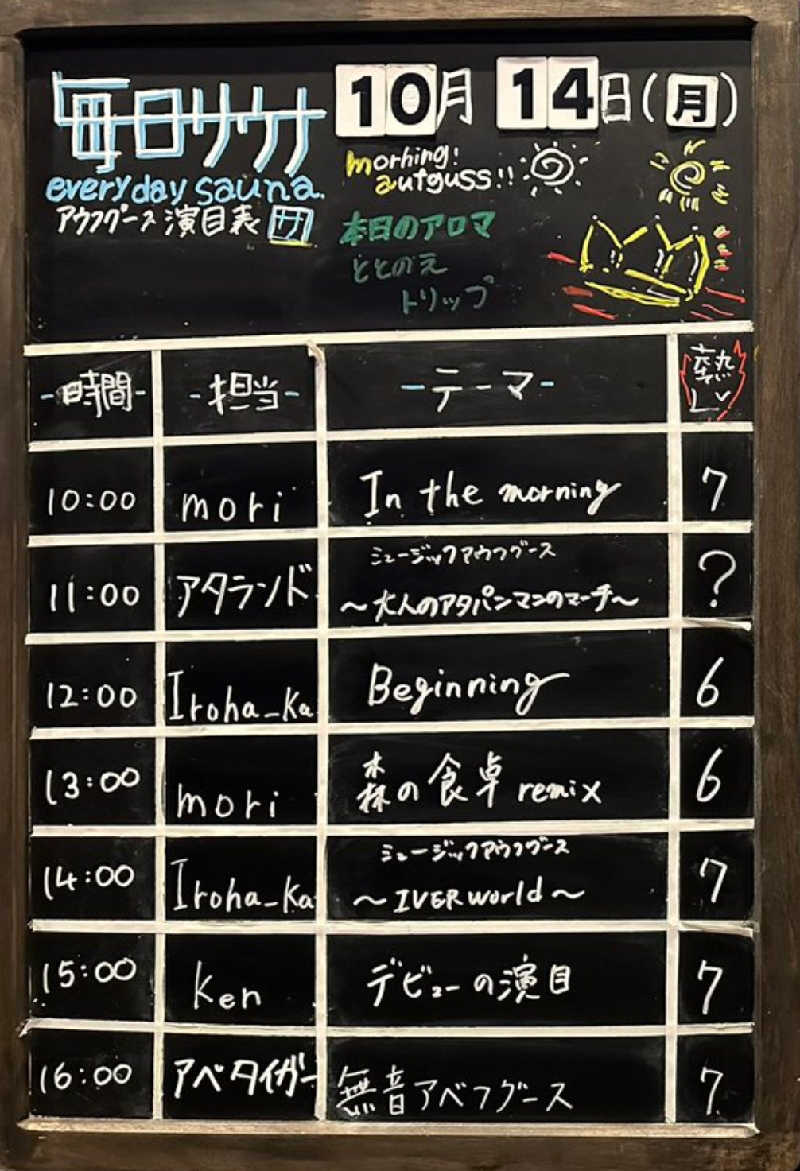 毎日サウナ
everyday sauna.
アウフグース演目表 サ
10月14日(月)
morning!
autguss!!
本日のアロマ
ととのえ
トリップ
-時間- -担当- -テーマ- 熱レベ
10:00 mori In the morning 7
11:00 アタランド ミュージックアウフグース
～大人のアタパンマンのマーチ～ ?
12:00 Iroha_Ka Beginning 6
13:00 mori 森の食卓 remix 6
14:00 Iroha_Ka ミュージックアウフグース
～IVERworld～ 7
15:00 Ken デビューの演目 7
16:00 アベタイガー 無音アベフグース 7